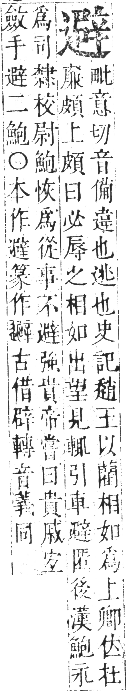 避
毗意切音備違也逃也史記趙王以藺相如爲上卿位在
廉頗上頗曰必辱之相如出望見輒引車避匿後漢鮑永
爲司隸校尉鮑恢爲從事不避強貴帝嘗曰貴戚宜
斂手避二鮑○本作避篆作𨐢古借辟轉音義同